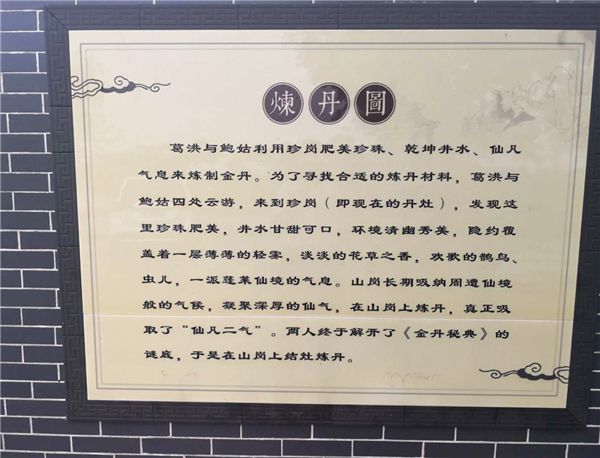 煉丹圖
葛洪与鲍姑利用珍岗肥美珍珠、乾坤井水、仙凡
气息来炼制金丹。为了寻找合适的炼丹材料，葛洪与
鲍姑四处云游，来到珍岗（即现在的丹灶），发现这
里珍珠肥美，井水甘甜可口，环境清幽秀美，隐约覆
盖着一层薄薄的轻雾，淡淡的花草之香，欢歌的鹊鸟、
虫儿，一派蓬莱仙境的气息。山岗长期吸纳周遭仙境
般的气候，凝聚深厚的仙气，在山岗上炼丹，真正吸
取了“仙凡二气”。两人终于解开了《金丹秘典》的
谜底，于是在山岗上结灶炼丹。